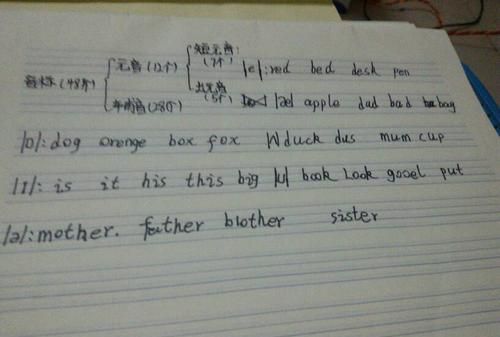 音标(48个) 元音(12个) 短元音:(7个) |e|:red bed desk pen
辅音(28个) 长元音(5个) |æ| apple dad bad bag
|ɒ|:dog orenge box fox |ʌ| duck dus mum cup
|ɪ|: is it his this big |u| book Look gooel put
|ə|:mother. father blother sister